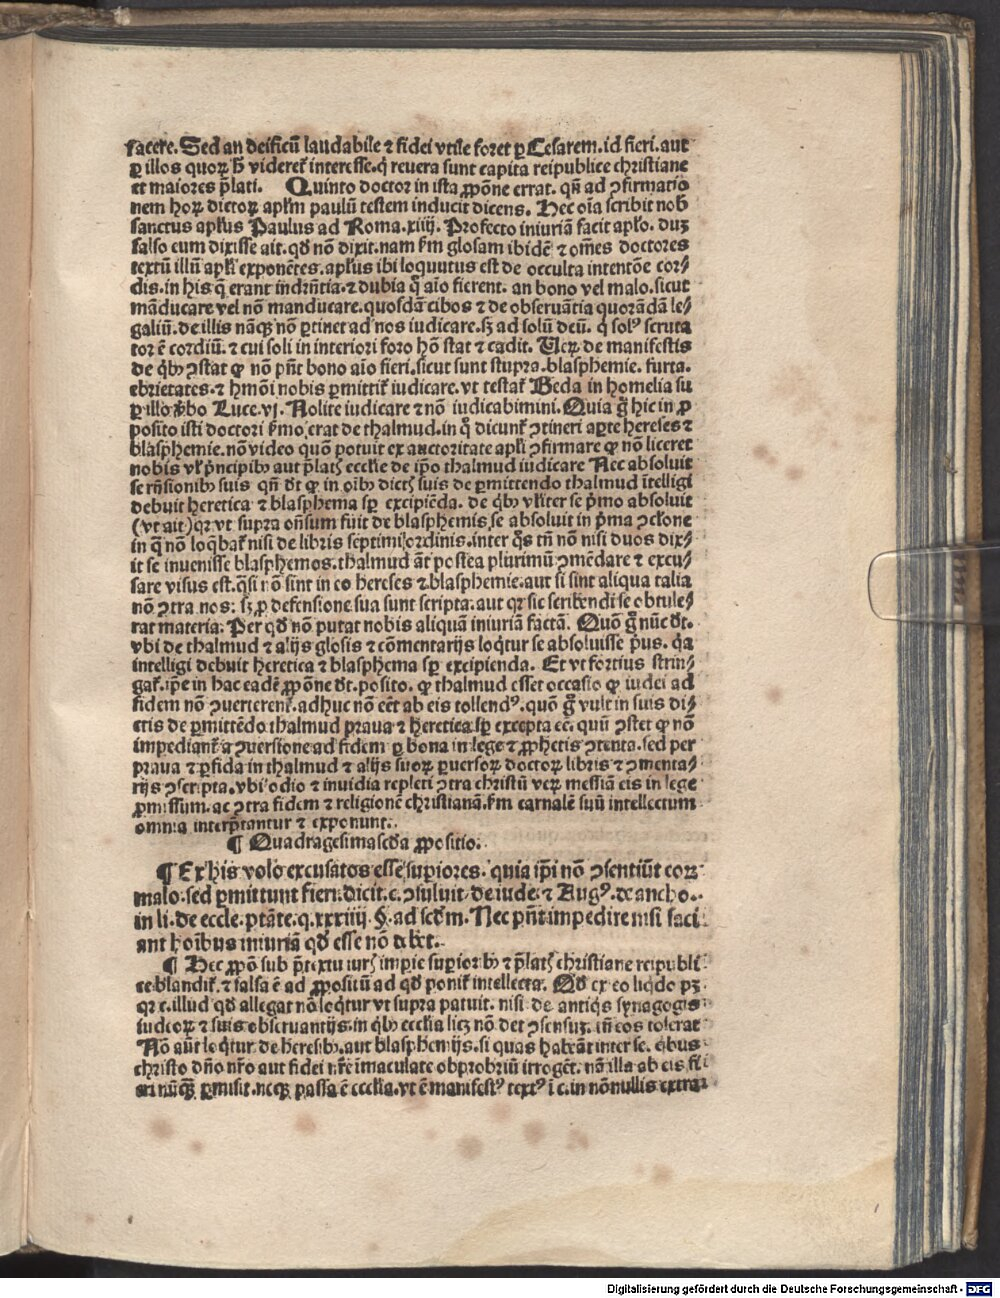 facere. Sed an deificū laudabile ⁊ fidei vtile foret ꝑ Cesarem. id fieri. aut
ꝑ illos quoꝝ h̄ videret᷑ interesse. q̇ reuera sunt capita reipublice christiane
et maiores p̄lati. Quinto doctor in ista ꝓpōne errat. qn̄ ad ꝯfirmatio
nem hoꝝ dictoꝝ apl̄m paulū testem inducit dicens. Hec oīa scribit nob̄
sanctus apl̄us Paulus ad Roma. xiiij. Profecto iniuriā facit apl̄o. duꝫ
falso eum dixisse ait. qd̄ nō dixit. nam s̄m glosam ibidē ⁊ om̄es doctores
textū illū apl̄i exponētes. apl̄us ibi loquutus est de occulta intentōe cor⸗
dis. in his q̄ erant indr̄ntia. ⁊ dubia q̊ aīo fierent. an bono vel malo. sicut
māducare vel nō manducare. quosdā cibos ⁊ de obseruātia quorādā le⸗
galiū. de illis nāqꝫ nō ꝑtinet ad nos iudicare. sꝫ ad solū deū. q̇ solꝰ scruta
tor ē cordiū. ⁊ cui soli in interiori foro hō stat ⁊ cadit. Ueꝝ de manifestis
de qb̄ꝫ ꝯstat ꝙ nō pn̄t bono aīo fieri. sicut sunt stupra. blasphemie. furta.
ebrietates. ⁊ hmōi nobis ꝑmittit᷑ iudicare. vt testat᷑ Beda in homelia su
ꝑ illo v̄bo Luce. vj. Nolite iudicare ⁊ nō iudicabimini. Quia g̊ hic in ꝓ
posito isti doctori s̄mo erat de thalmud. in q̊ dicunt᷑ ꝯtineri apte hereses ⁊
blasphemie. nō video quō potuit ex auctoritate apl̄i ꝯfirmare ꝙ nō liceret
nobis vl̄ p̄ncipibꝫ aut p̄latꝭ eccl̄ie de ip̄o thalmud iudicare Nec absoluit
se rn̄sionibꝫ suis qn̄ d̄t ꝙ in oībꝫ dictꝭ suis de ꝑmittendo thalmud ītelligi
debuit heretica ⁊ blasphema sp̄ excipiēda. de qb̄ꝫ vl̄iter se p̄mo absoluit
(vt ait) qꝛ vt supra on̄sum fuit de blasphemis se absoluit in p̄ma ꝯcl̄one
in q̄ nō loq̄bat᷑ nisi de libris septimi ordinis. inter q̊s tn̄ nō nisi duos dix⸗
it se inuenisse blasphemos. thalmud āt postea plurimū ꝯmēdare ⁊ excu⸗
sare visus est. q̄si nō sint in eo hereses ⁊ blasphemie. aut si sint aliqua talia
nō ꝯtra nos: sꝫ ꝓ defensione sua sunt scripta. aut qꝛ sic scribendi se obtule⸗
rat materia. Per qd̄ nō putat nobis aliquā iniuriā factā. Quō g̊ nūc d̄t.
vbi de thalmud ⁊ alijs glosis ⁊ cōmentarijs loq̇tur se absoluisse p̄us. q̇a
intelligi debuit heretica ⁊ blasphema sp̄ excipienda. Et vt fortius strin⸗
gat᷑. ip̄e in hac eadē ꝓpōne d̄t. posito. ꝙ thalmud esset occasio ꝙ iudei ad
fidem nō ꝯuerterent᷑. adhuc nō eēt ab eis tollendꝰ. quō g̊ vult in suis di⸗
ctis de ꝑmittēdo thalmud praua ⁊ heretica sp̄ excepta eē. quū ꝯstet ꝙ nō
impediant᷑ a ꝯuersione ad fidem ꝑ bona in lege ⁊ ꝓphetis ꝯtenta. sed per
praua ⁊ ꝑfida in thalmud ⁊ alijs suoꝝ ꝑuersoꝝ doctoꝝ libris ⁊ ꝯmenta⸗
rijs ꝯscripta. vbi odio ⁊ inuidia repleti ꝯtra christū veꝝ messiā eis in lege
ꝓmissum. ac ꝯtra fidem ⁊ religionē christianā. s̄m carnalē suū intellectum
omnia interp̄tantur ⁊ exponunt.
¶ Quadragesimasecd̄a ꝓpositio.
¶ Ex his volo excusatos esse suꝑiores. quia ip̄i nō ꝯsentiūt coꝝ
malo. sed ꝑmittunt fieri. dicit. c. ꝯsuluit. de iude. ⁊ Augꝰ. de ancho.
in li. de eccle. ptāte. q. xxxiiij. §. ad scd̄m. Nec pn̄t impedire nisi faci
ant hoībus iniuriā qd̄ esse nō debet.
¶ Hec ꝓpō sub p̄textu iurꝭ impie suꝑioribꝫ ⁊ p̄latꝭ christiane reipubli
ce blandit᷑. ⁊ falsa ē ad ꝓpositū ad qd̄ ponit᷑ intellecta. Qd̄ ex eo liq̇do pꝫ
qꝛ c. illud qd̄ allegat nō loq̇tur vt supra patuit. nisi de antiq̇s synagogis
iudeoꝝ ⁊ suis obseruantijs. in qb̄ꝫ ecclesia licꝫ nō det ꝯsensuꝫ. tn̄ eos tolerat
Nō aūt loq̇tur de heresibꝫ. aut blasphemijs. si quas habeāt inter se. q̇bus
christo dn̄o nr̄o aut fidei nr̄e immaculate obprobriū irrogēt. nā illa ab eis fi
eri nūqꝫ ꝑmisit. neqꝫ passa ē ecclesia. vt ē manifestꝰ textꝰ ī c. in nōnullis extra
Digitalisierung gefördert durch die Deutsche Forschungsgemeinschaft - DFG